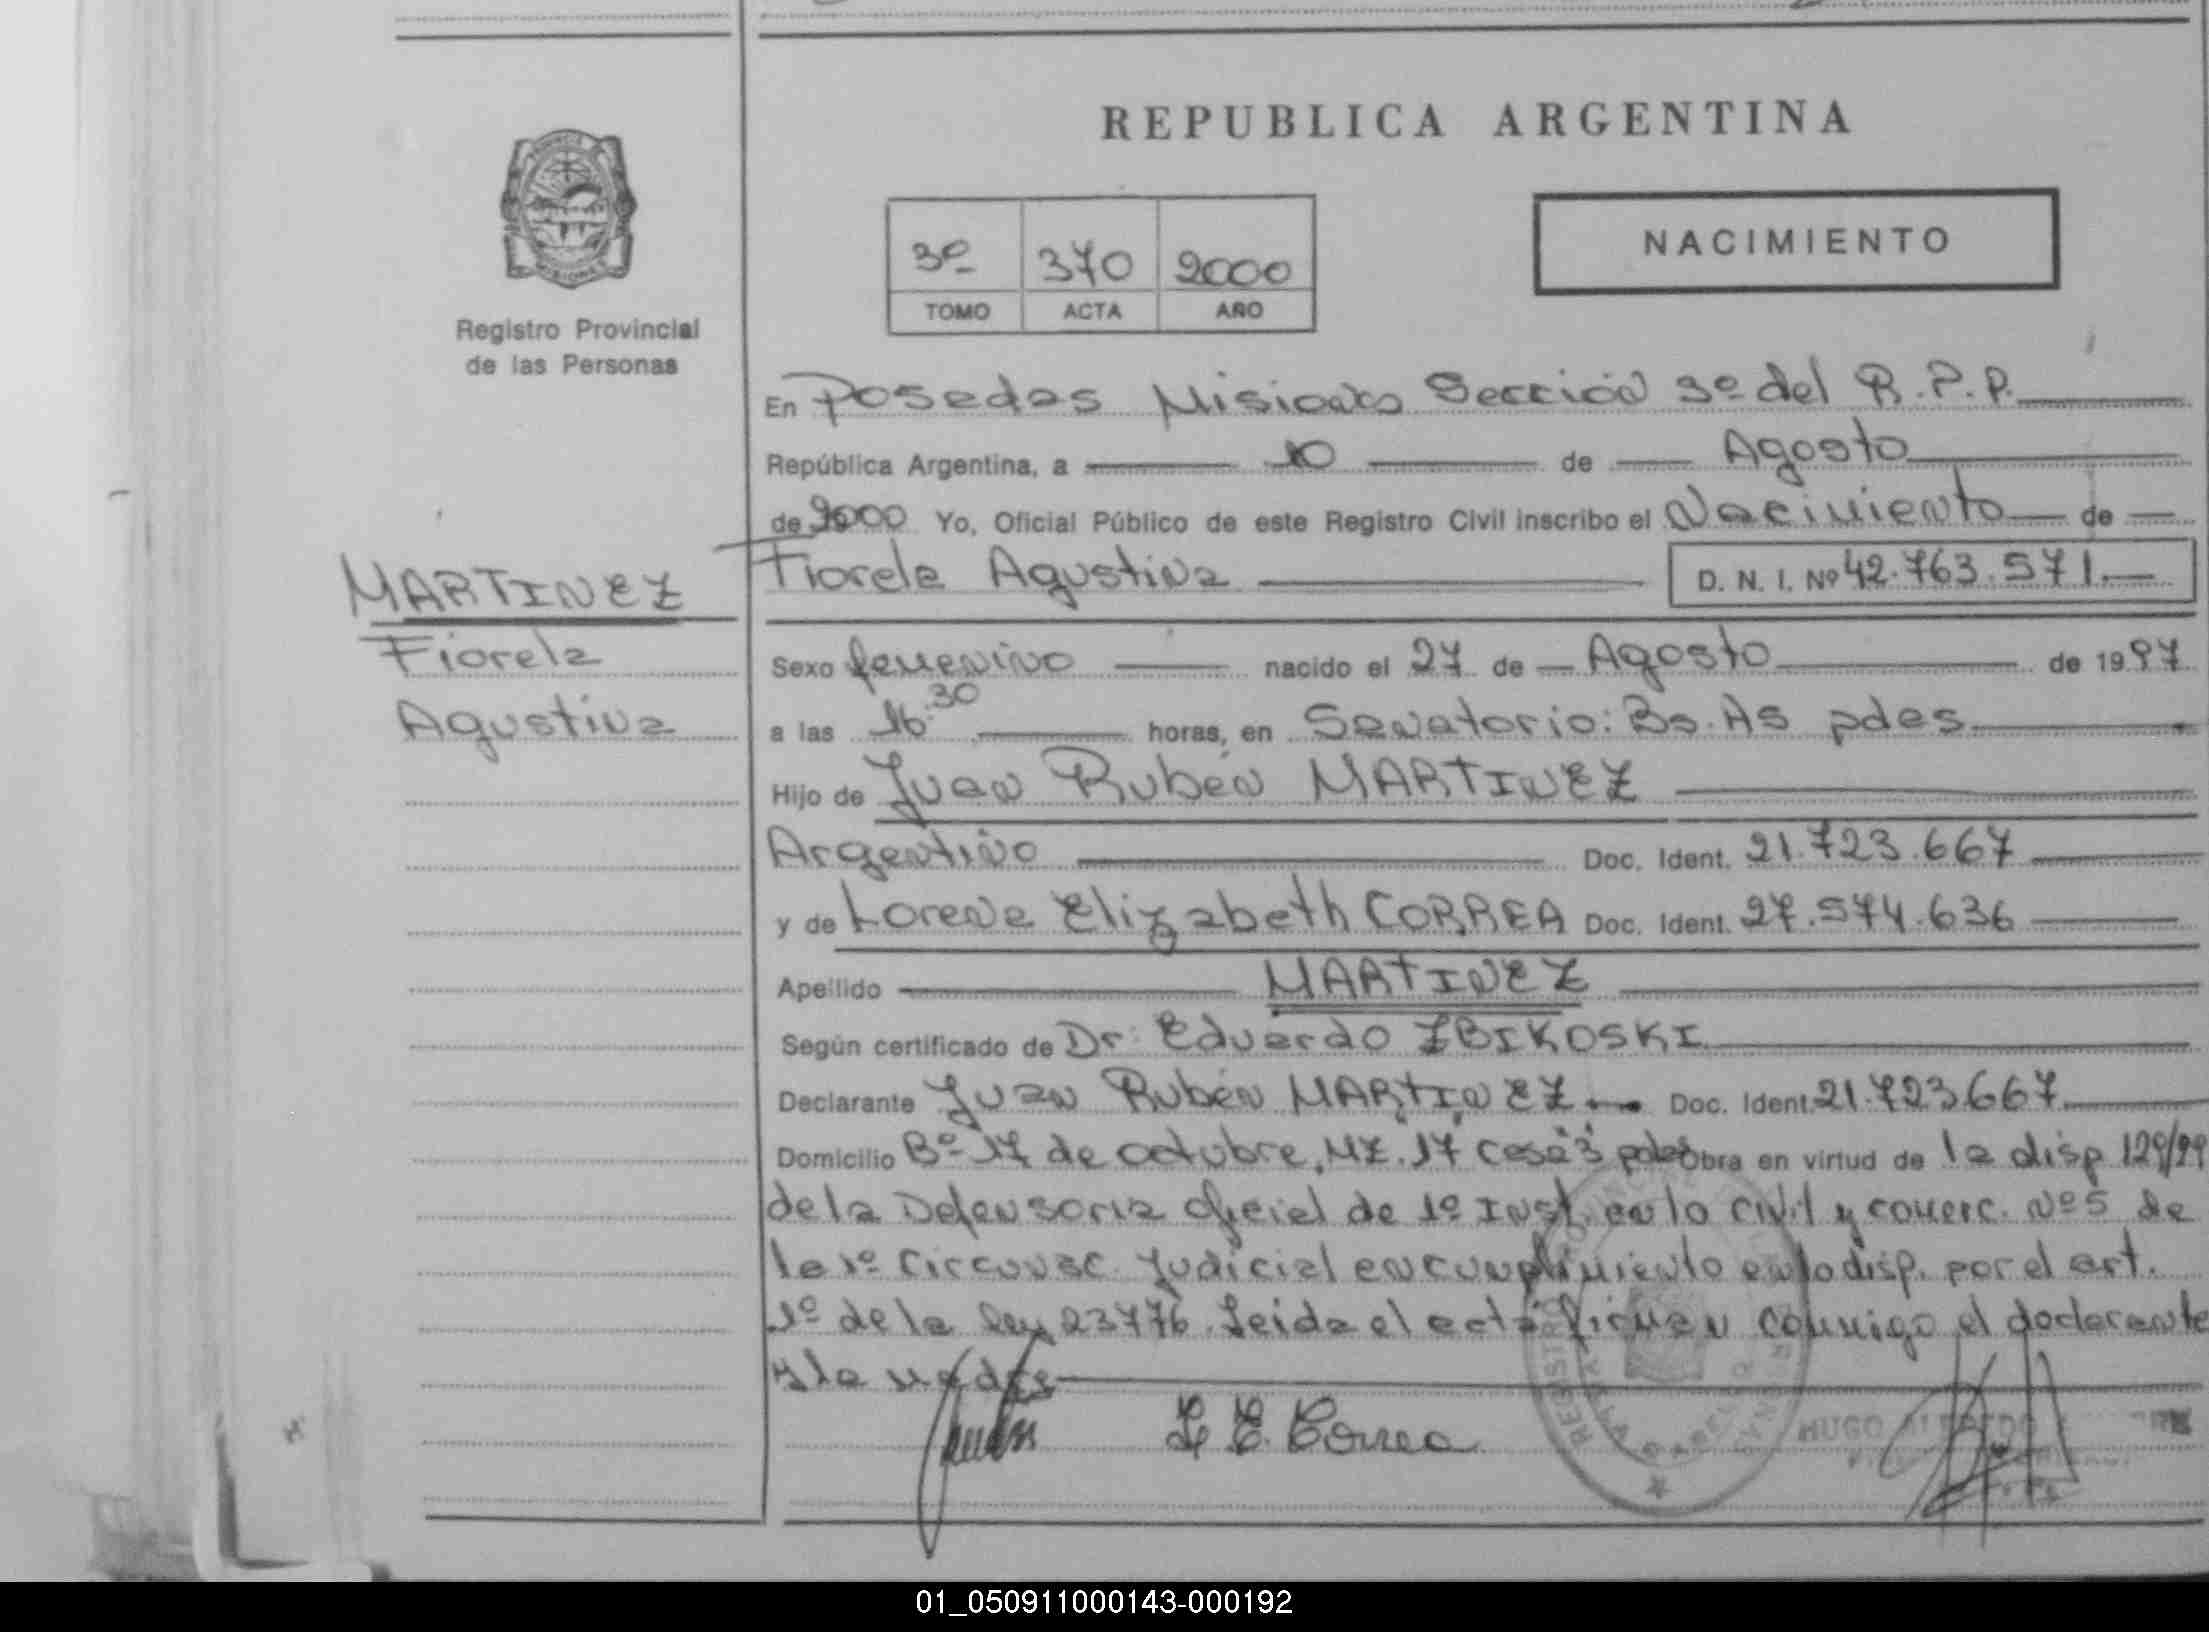 REPUBLICA ARGENTINA
NACIMIENTO
3º 370 2000
TOMO ACTA AÑO
Registro Provincial
de las Personas
En Posadas Misiones Sección 3º del R.P.P.
República Argentina, a 10 de Agosto
de 2000 Yo, Oficial Público de este Registro Civil inscribo el Nacimiento de
Fiorela Agustina D. N. I. Nº 42.763.571.
MARTINEZ
Fiorela
Agustina
Sexo femenino nacido el 27 de Agosto de 1997
a las 16:30 horas, en Sanatorio: Bs. As pdas.
Hijo de Juan Rubén MARTINEZ
Argentino Doc. Ident. 21.723.667
y de Lorena Elizabeth CORREA Doc. Ident. 27.574.636
Apellido MARTINEZ
Según certificado de Dr: Eduardo ZBIKOSKI
Declarante Juan Rubén MARTINEZ. Doc. Ident. 21.723.667
Domicilio Bº 17 de octubre, MZ. 17 casa 3 pdas Obra en virtud de la disp 129/99
de la Defensoria oficial de 1º Inst. en lo civil y comerc. Nº 5 de
la 1º Circunsc. Judicial en cumplimiento en lo disp. por el art.
1º de la ley 23776. Leida el acta firman conmigo el declarante
y la madre
L E. Correa
HUGO ALFREDO
REGISTRO
01_050911000143-000192